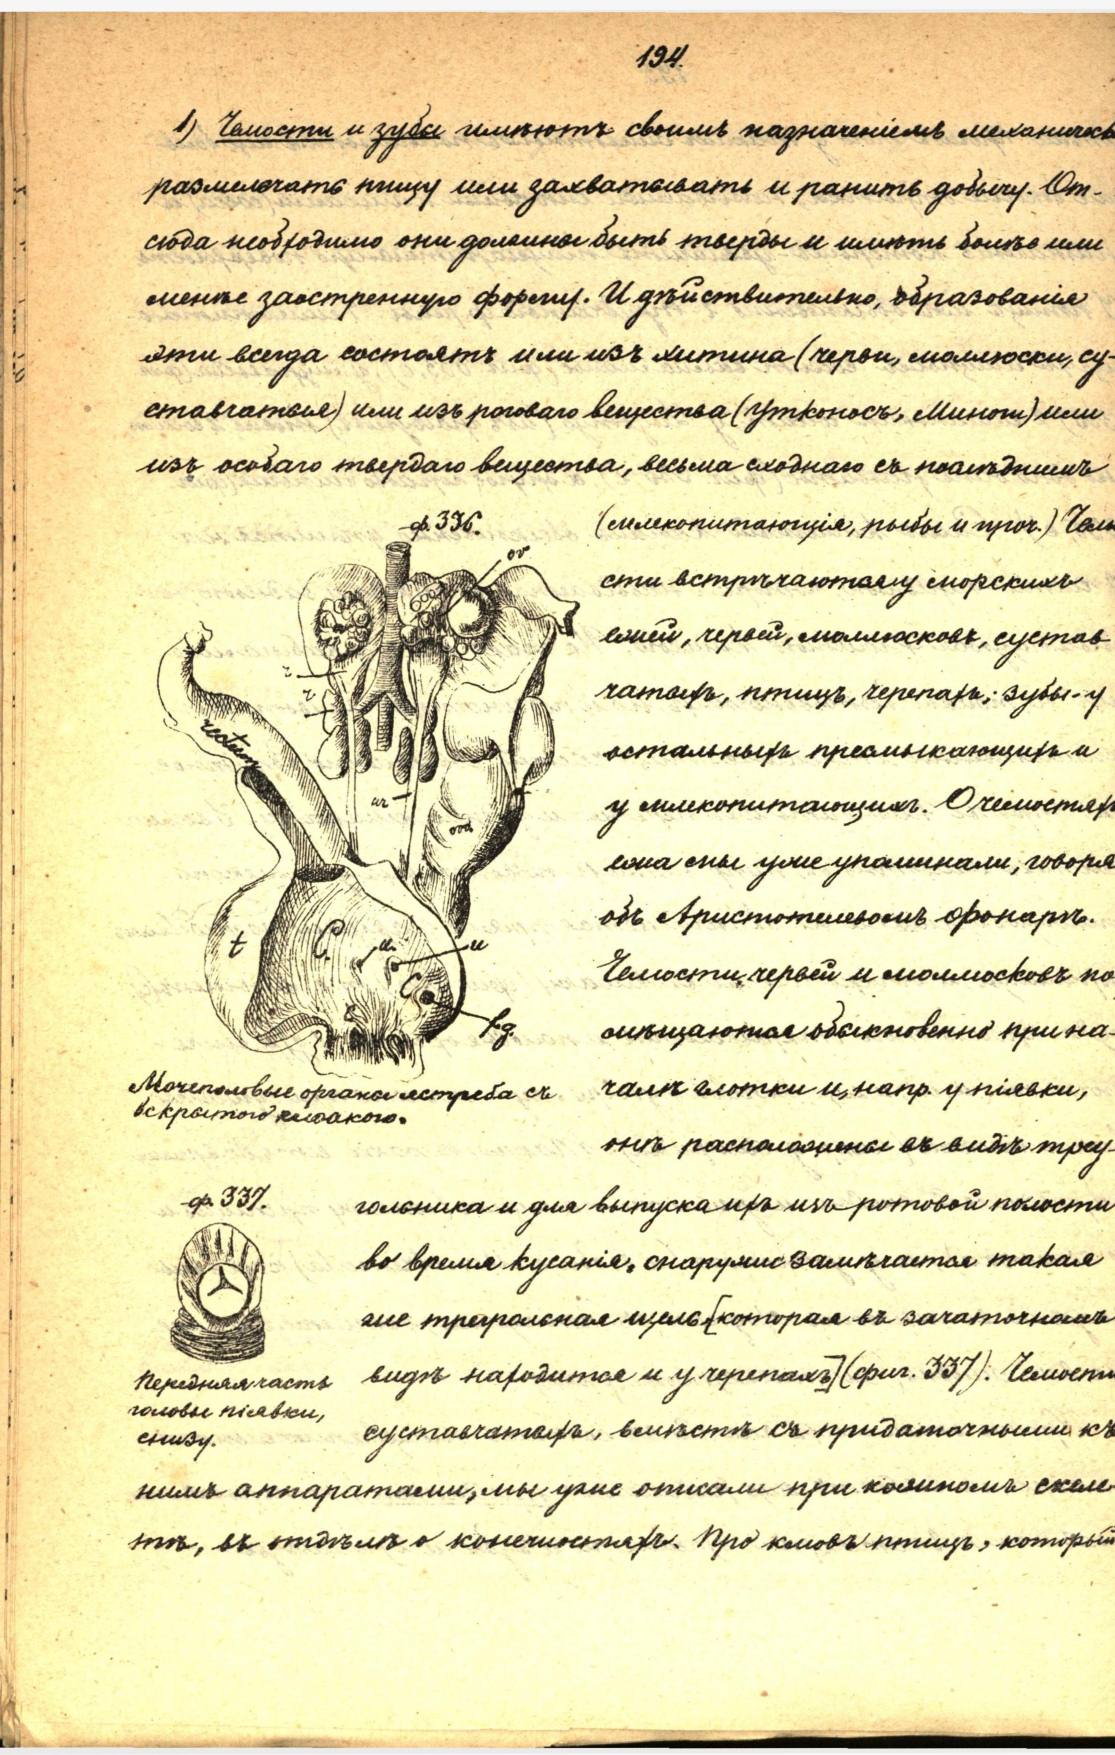 194.
1) Челюсти и зубы имѣютъ своимъ назначеніемъ механическ
размельчать пищу или захватывать и ранить добычу. От-
сюда необходимо они должны быть тверды и имѣть болѣе или
менѣе заостренную форму. И дѣйствительно, образованія
эти всегда состоятъ или изъ хитина (черви, моллюски, су-
ставчатыя) или изъ рогового вещества (Утконосъ, Миноги) или
изъ особаго твердаго вещества, весьма сходнаго съ послѣднимъ
ф. 336.
(млекопитающія, рыбы и проч.) Челю
сти встрѣчаются у морскихъ
ежей, червей, моллюсковъ, сустав
чатыхъ, птицъ, черепахъ; зубы - у
остальныхъ пресмыкающихъ и
у млекопитающихъ. О челюстяхъ
ежа мы уже упоминали, говоря
объ Аристотелевомъ фонарѣ.
Челюсти червей и моллюсковъ по
мѣщаются обыкновенно при на-
чалѣ глотки и, напр. у піявки,
онѣ расположены въ видѣ треу-
ov
r
r
rectum
ur
ovd
t
C.
u.
u
C
f.g.
Мочеполовые органы ястреба съ
вскрытою клоакою.
ф. 337.
Передняя часть
головы піявки,
снизу.
гольника и для выпуска ихъ изъ ротовой полости
во время кусанія, снаружи замѣчается такая
же треугольная щель [которая въ зачаточномъ
видѣ находится и у черепахъ] (фиг. 337). Челюсти
суставчатыхъ, вмѣстѣ съ придаточными къ
нимъ аппаратами, мы уже описали при кожномъ скеле-
тѣ, въ отдѣлѣ о конечностяхъ. Про клювъ птицъ, который